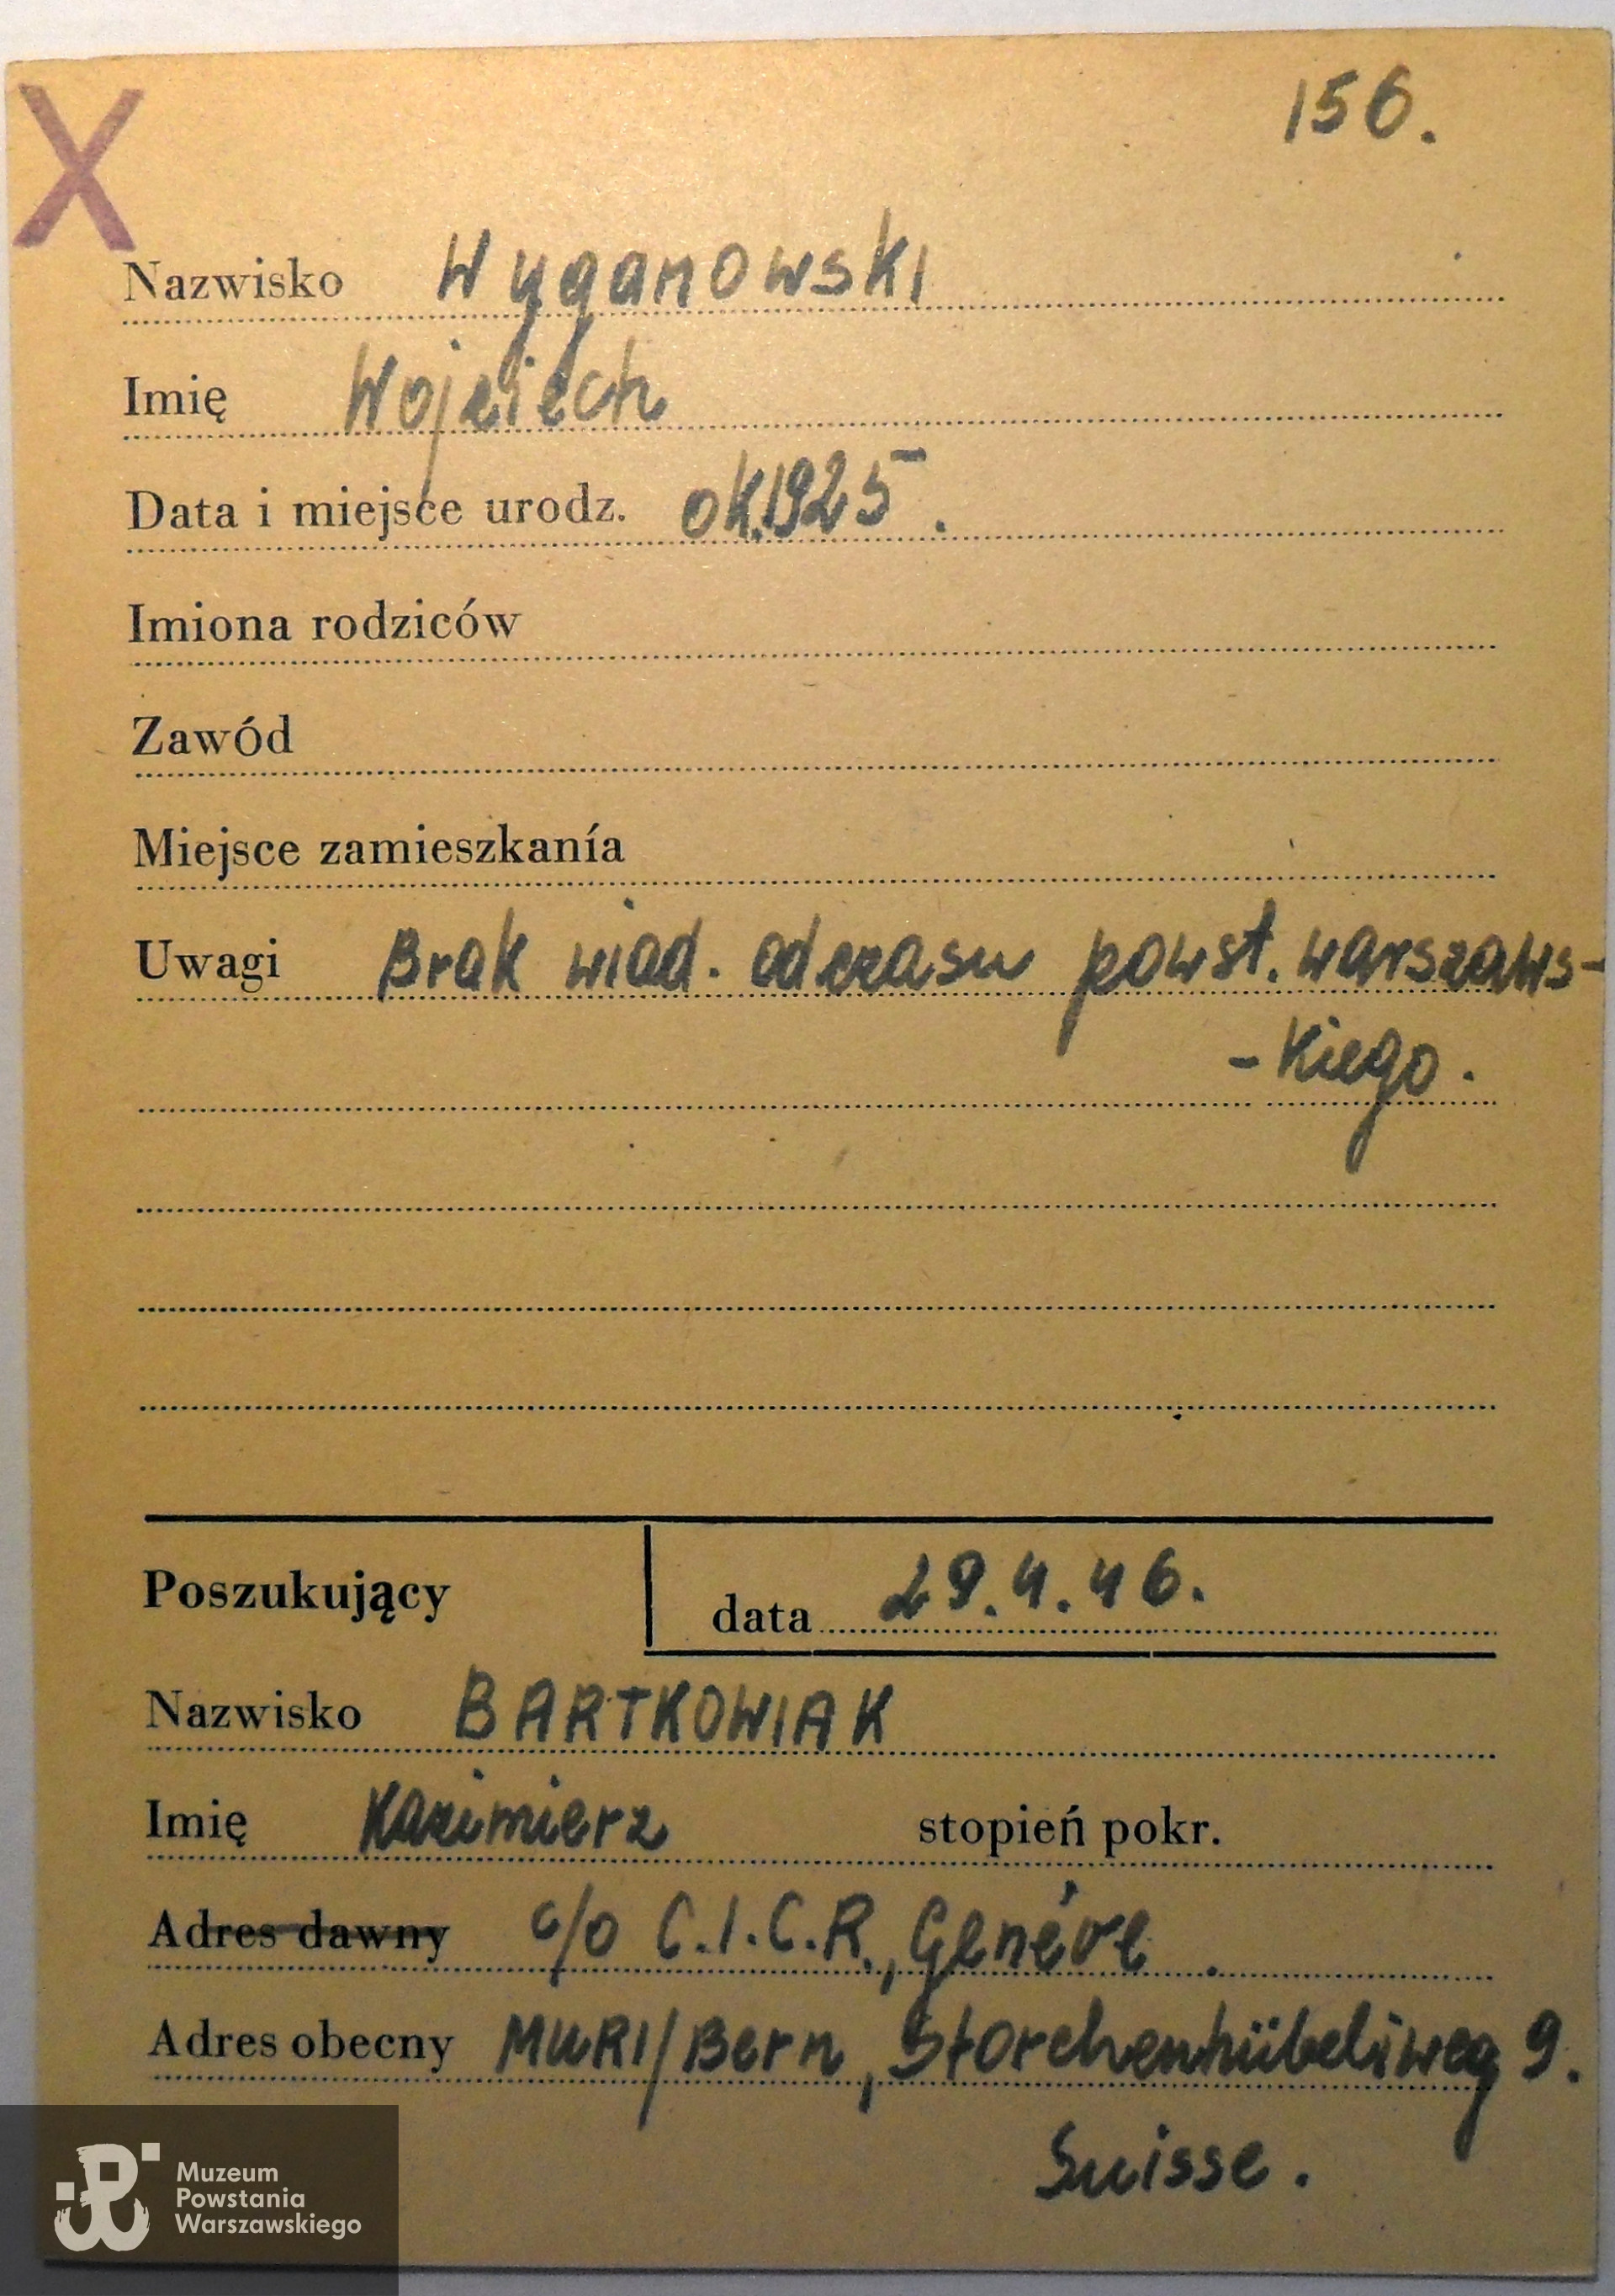 X
156.
Nazwisko Wyganowski
Imię Wojciech
Data i miejsce urodz. ok.1925.
Imiona rodziców
Zawód
Miejsce zamieszkanía
Uwagi Brak wiad. od czasu powst. warszaws-
-kiego.
Poszukujący data 29.4.46.
Nazwisko BARTKOWIAK
Imię Kazimierz stopień pokr.
Adres dawny c/o C.I.C.R., Genéve.
Adres obecny MURI/Bern, Storchenhübeliweg 9.
Suisse.
Muzeum
Powstania
Warszawskiego